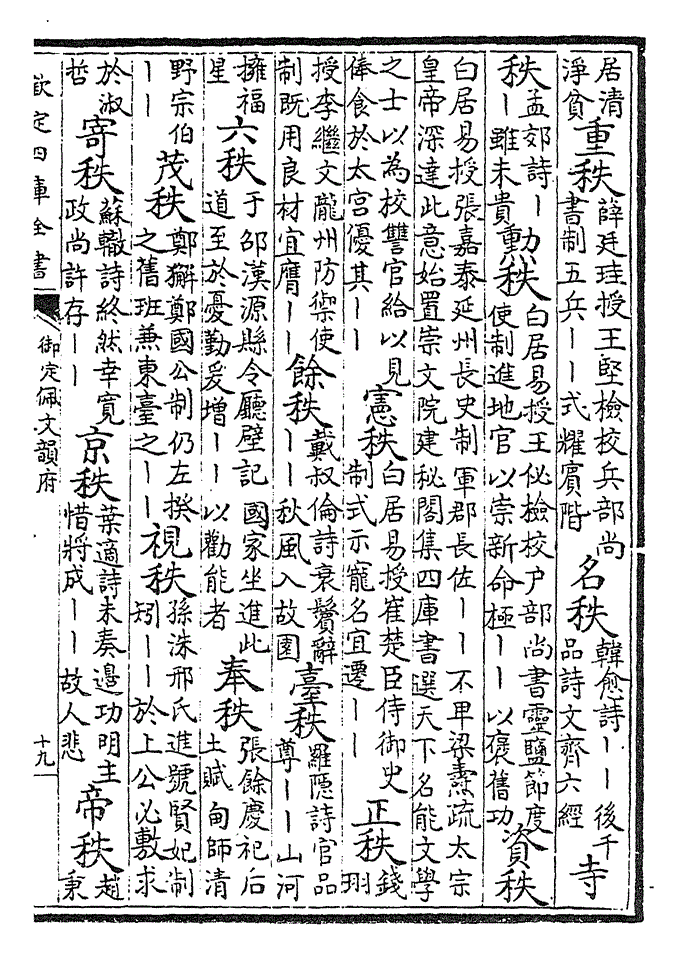 居清淨貧重秩薛廷珪授王堅檢校兵部尚書制五兵——式耀賓階名秩韓愈詩——後千品詩文齊六經寺
秩孟郊詩——雖未貴勲秩白居易授王佖檢校户部尚書靈鹽節度使制進地官以崇新命極——以褒舊功資秩
白居易授張嘉泰延州長史制軍郡長佐——不卑梁燾疏太宗皇帝深達此意始置崇文院建秘閣集四庫書選天下名能文學
之士以為校讐官給以見俸食於太宫優其——憲秩白居易授崔楚臣侍御史制式示寵名宜遷——正秩錢珝
授李繼文隴州防禦使制既用良材宜膺——餘秩戴叔倫詩衰鬢辭——秋風入故園臺秩羅隱詩官品尊——山河
擁福星六秩于邵漢源縣令廳壁記 國家坐進此道至於憂勤爰增——以勸能者奉秩張餘慶祀后土賦甸師清
野宗伯——茂秩鄭獬鄭國公制仍左揆之舊班兼東臺之——視秩孫洙邢氏進號賢妃制矧——於上公必敷求
於淑哲寄秩蘇轍詩終然幸寬政尚許存——京秩葉適詩未奏邊功明主惜將成——故人悲帝秩趙秉
欽定四庫全書
御定佩文韻府
十九